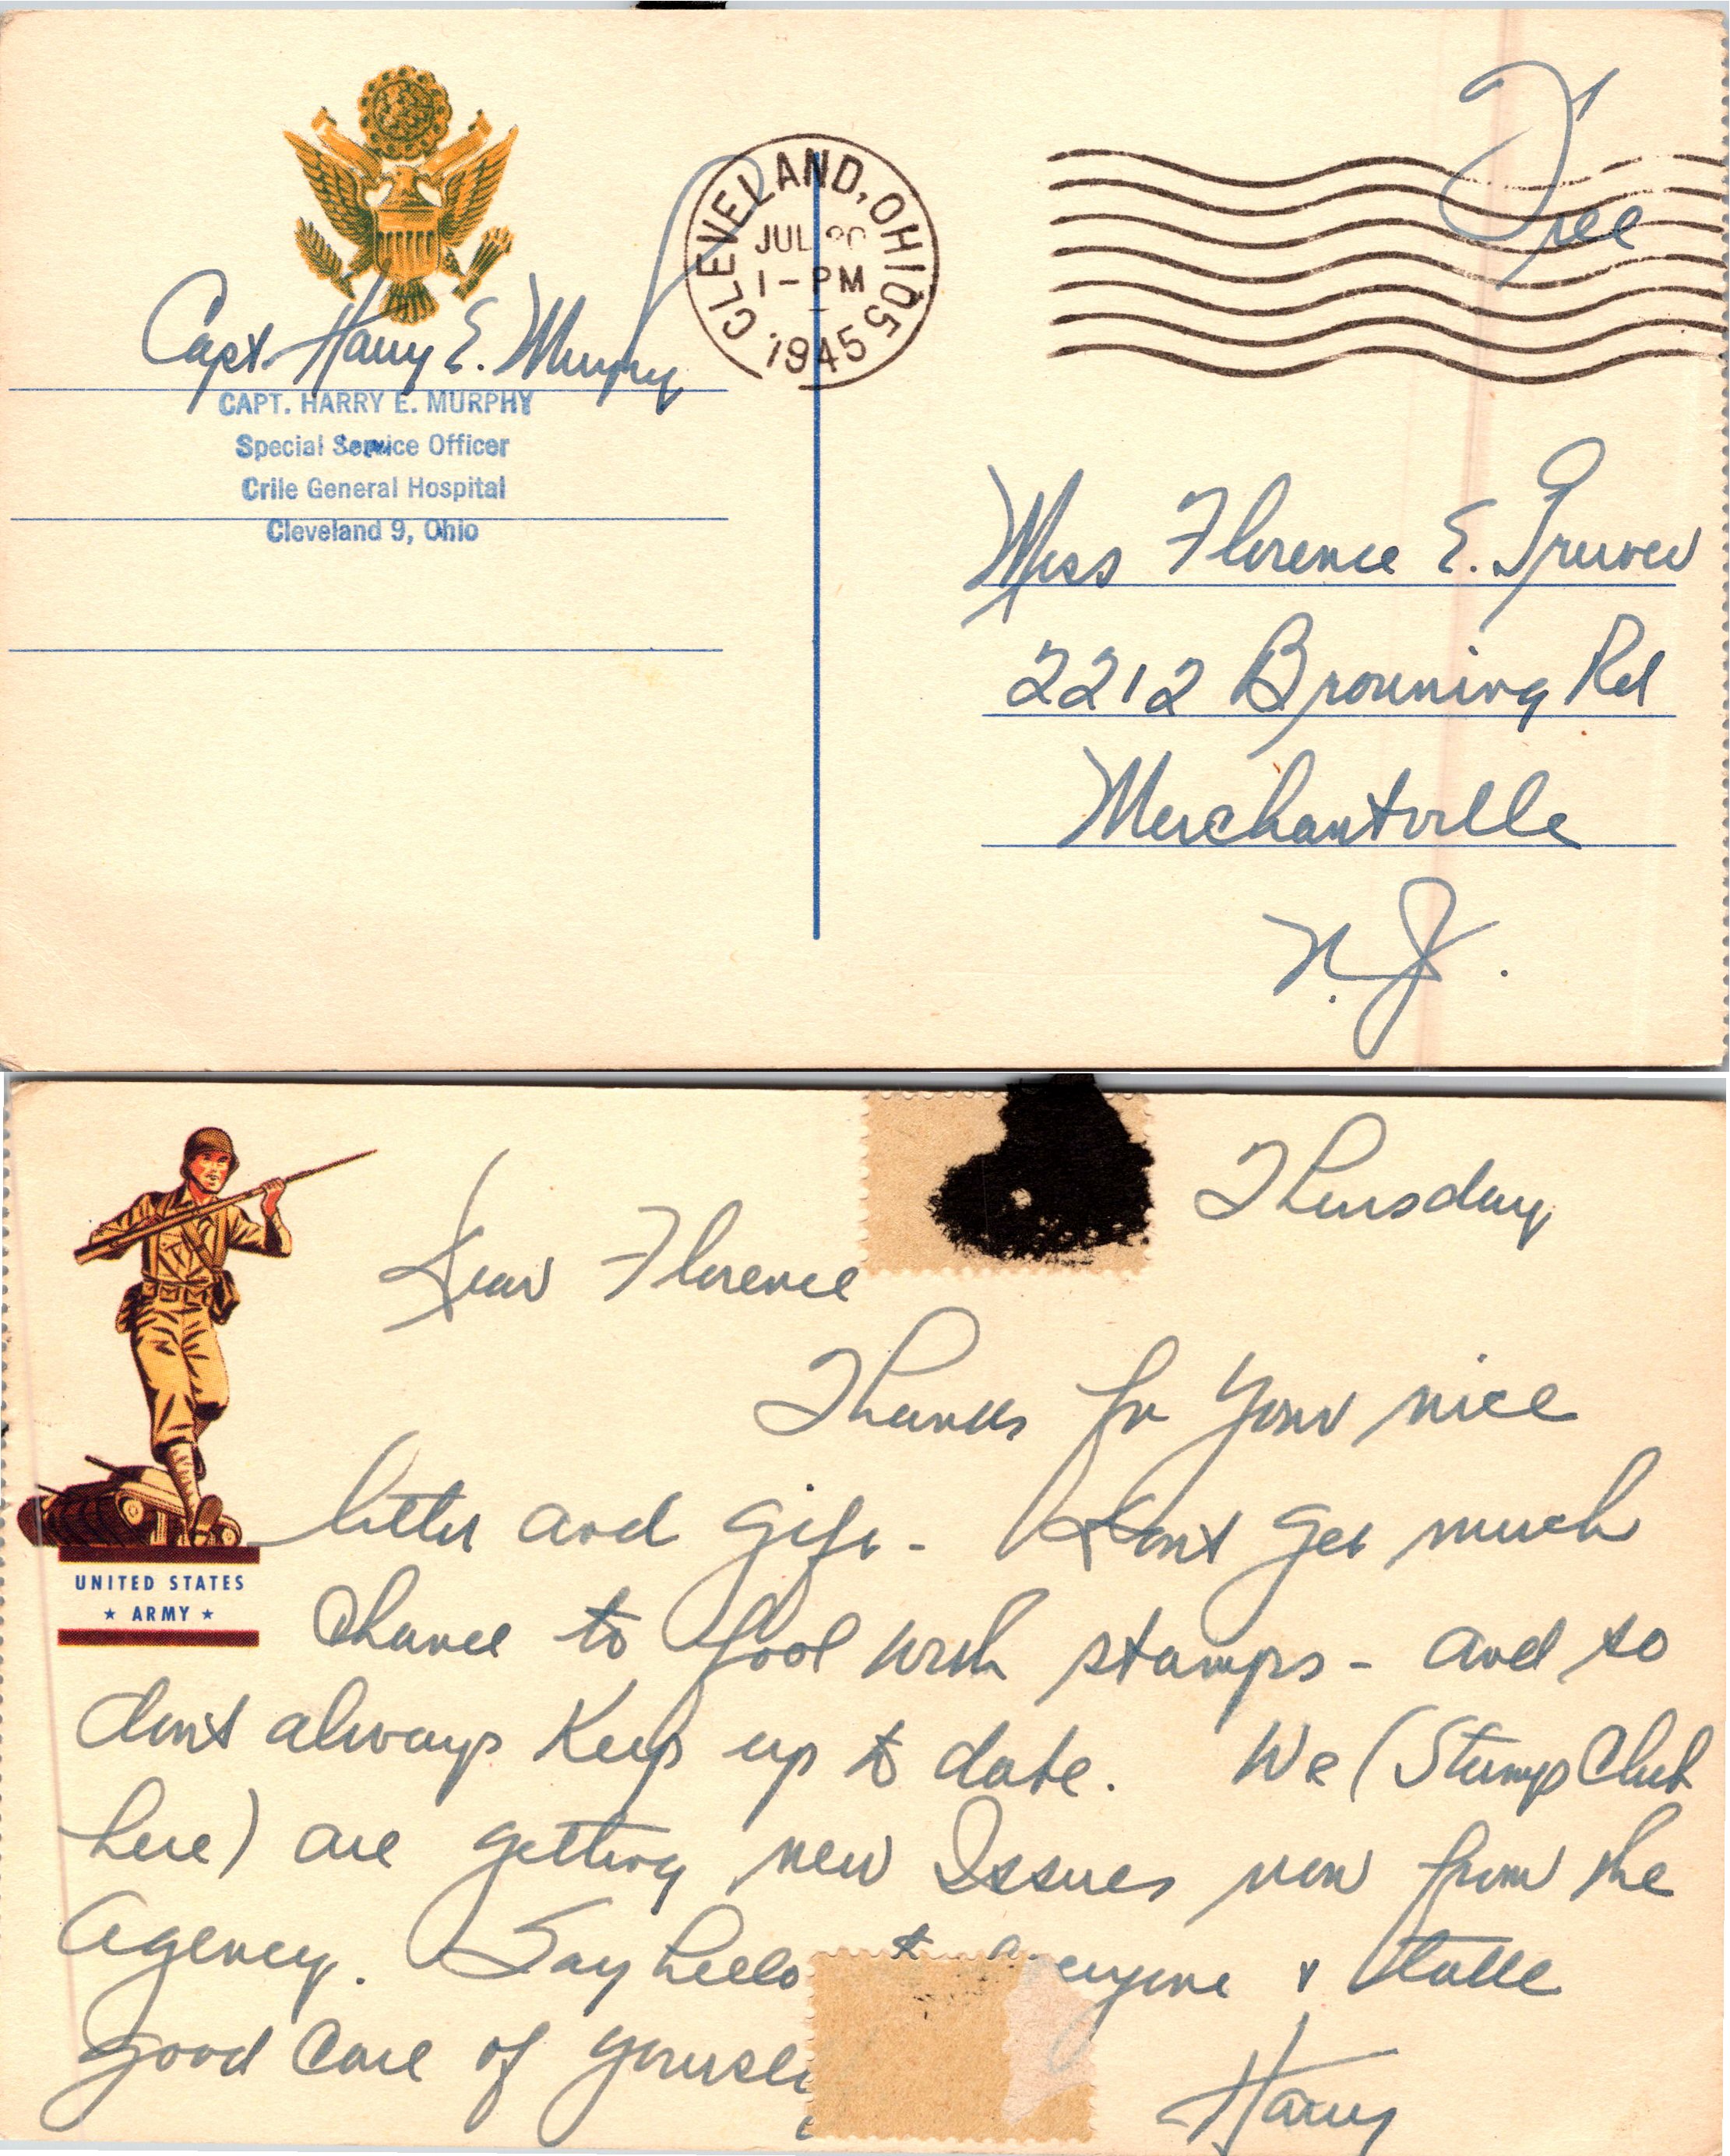 Free
CLEVELAND, OHIO 5
JUL 20
1 - PM
1945
Capt. Harry E. Murphy
CAPT. HARRY E. MURPHY
Special Service Officer
Crile General Hospital
Cleveland 9, Ohio
Miss Florence E.
2212 Browning Rd
Merchantville
N.J.
Thursday
Dear Florence
Thanks for your nice
letter and gift - Dont get much
chance to fool with stamps - and so
dont always keep up to date. We (Stamp Club
here) are getting new Issues now from the
Agency. Say hello to & take
good care of
Harry
UNITED STATES
★ ARMY ★